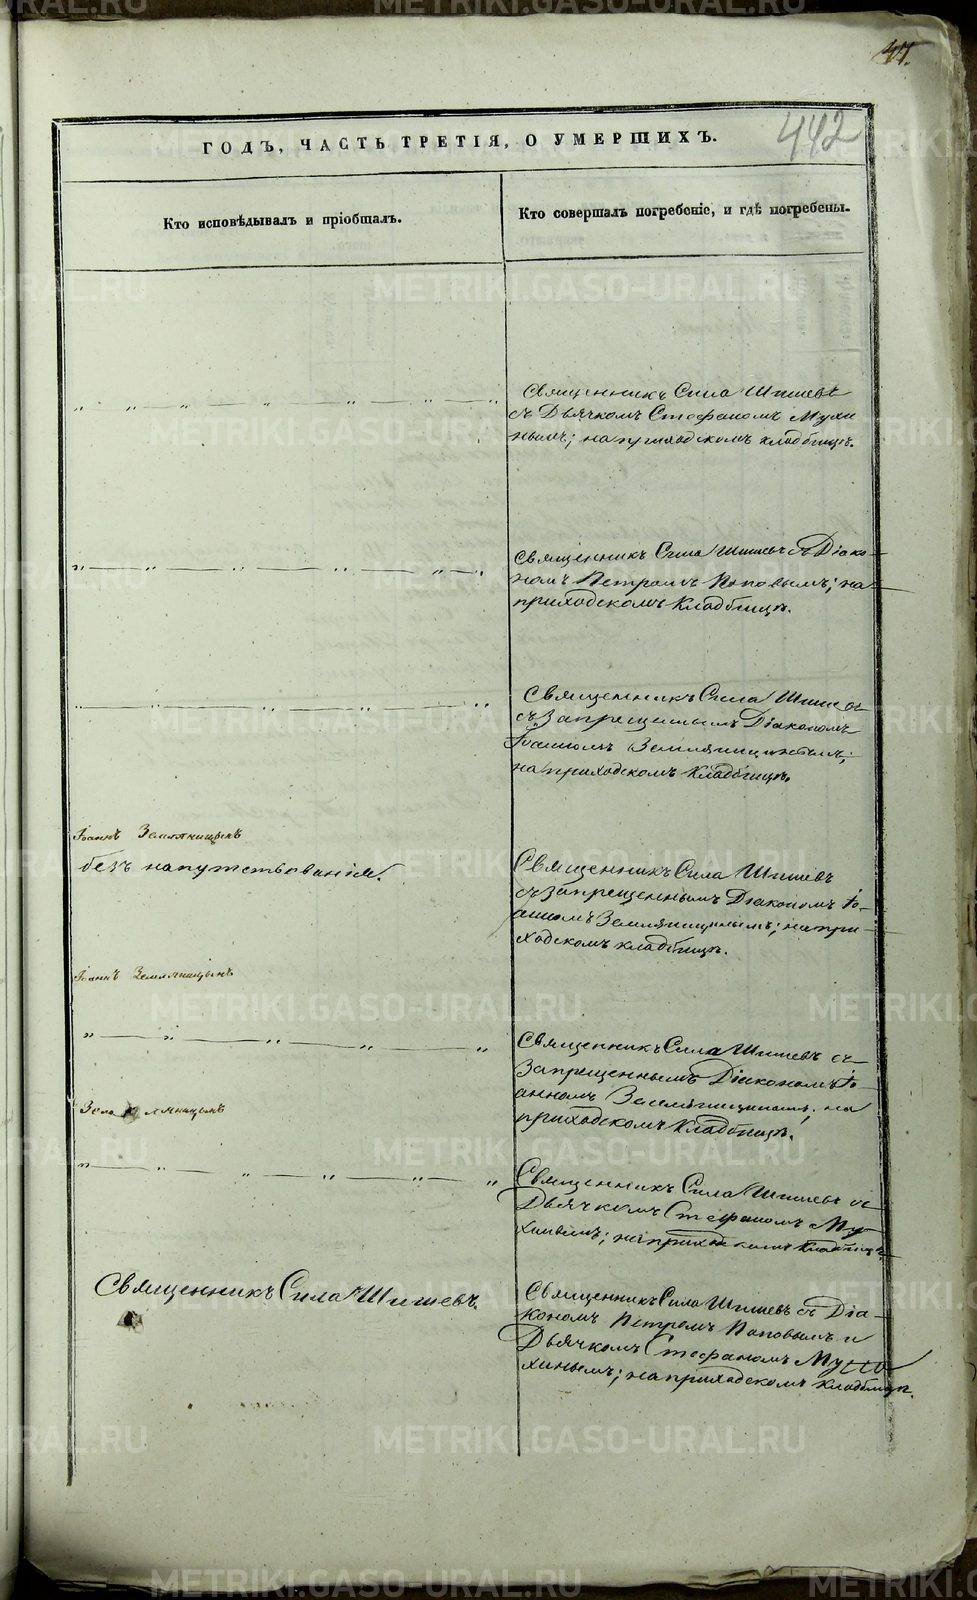 47.
442
ГОДЪ, ЧАСТЬ ТРЕТІЯ, О УМЕРШИХЪ.
Кто исповѣдывалъ и пріобщалъ.
Кто совершалъ погребеніе, и гдѣ погребены.
Священникъ Сила Шишевъ
съ Дьячкомъ Стефаномъ Мухи
нымъ; на приходскомъ кладбищѣ.
Священникъ Сила Шишевъ съ Діако-
номъ Петромъ Поповымъ; на
приходскомъ кладбищѣ.
Священникъ Сила Шишевъ
съ Запрещеннымъ Діакономъ
Іоанномъ Земляницинымъ;
на приходскомъ кладбищѣ.
Іоаннъ Земляницынъ
безъ напутствованія.
Священникъ Сила Шишевъ
съ запрещеннымъ Діакономъ Іо-
анномъ Земляницинымъ; на при-
ходскомъ кладбищѣ.
Іоаннъ Земляницынъ
Священникъ Сила Шишевъ съ
Запрещеннымъ Діакономъ Іо-
анномъ Земляницинымъ; на
приходскомъ кладбищѣ.
Священникъ Сила Шишевъ съ
Дьячкомъ Стефаномъ Му-
хинымъ; на приходскомъ кладбищѣ.
Священникъ Сила Шишевъ.
Священникъ Сила Шишевъ съ Діа-
кономъ Петромъ Поповымъ и
Дьячкомъ Стефаномъ Му
хинымъ; на приходскомъ кладбищѣ.
METRIKI.GASO-URAL.RU